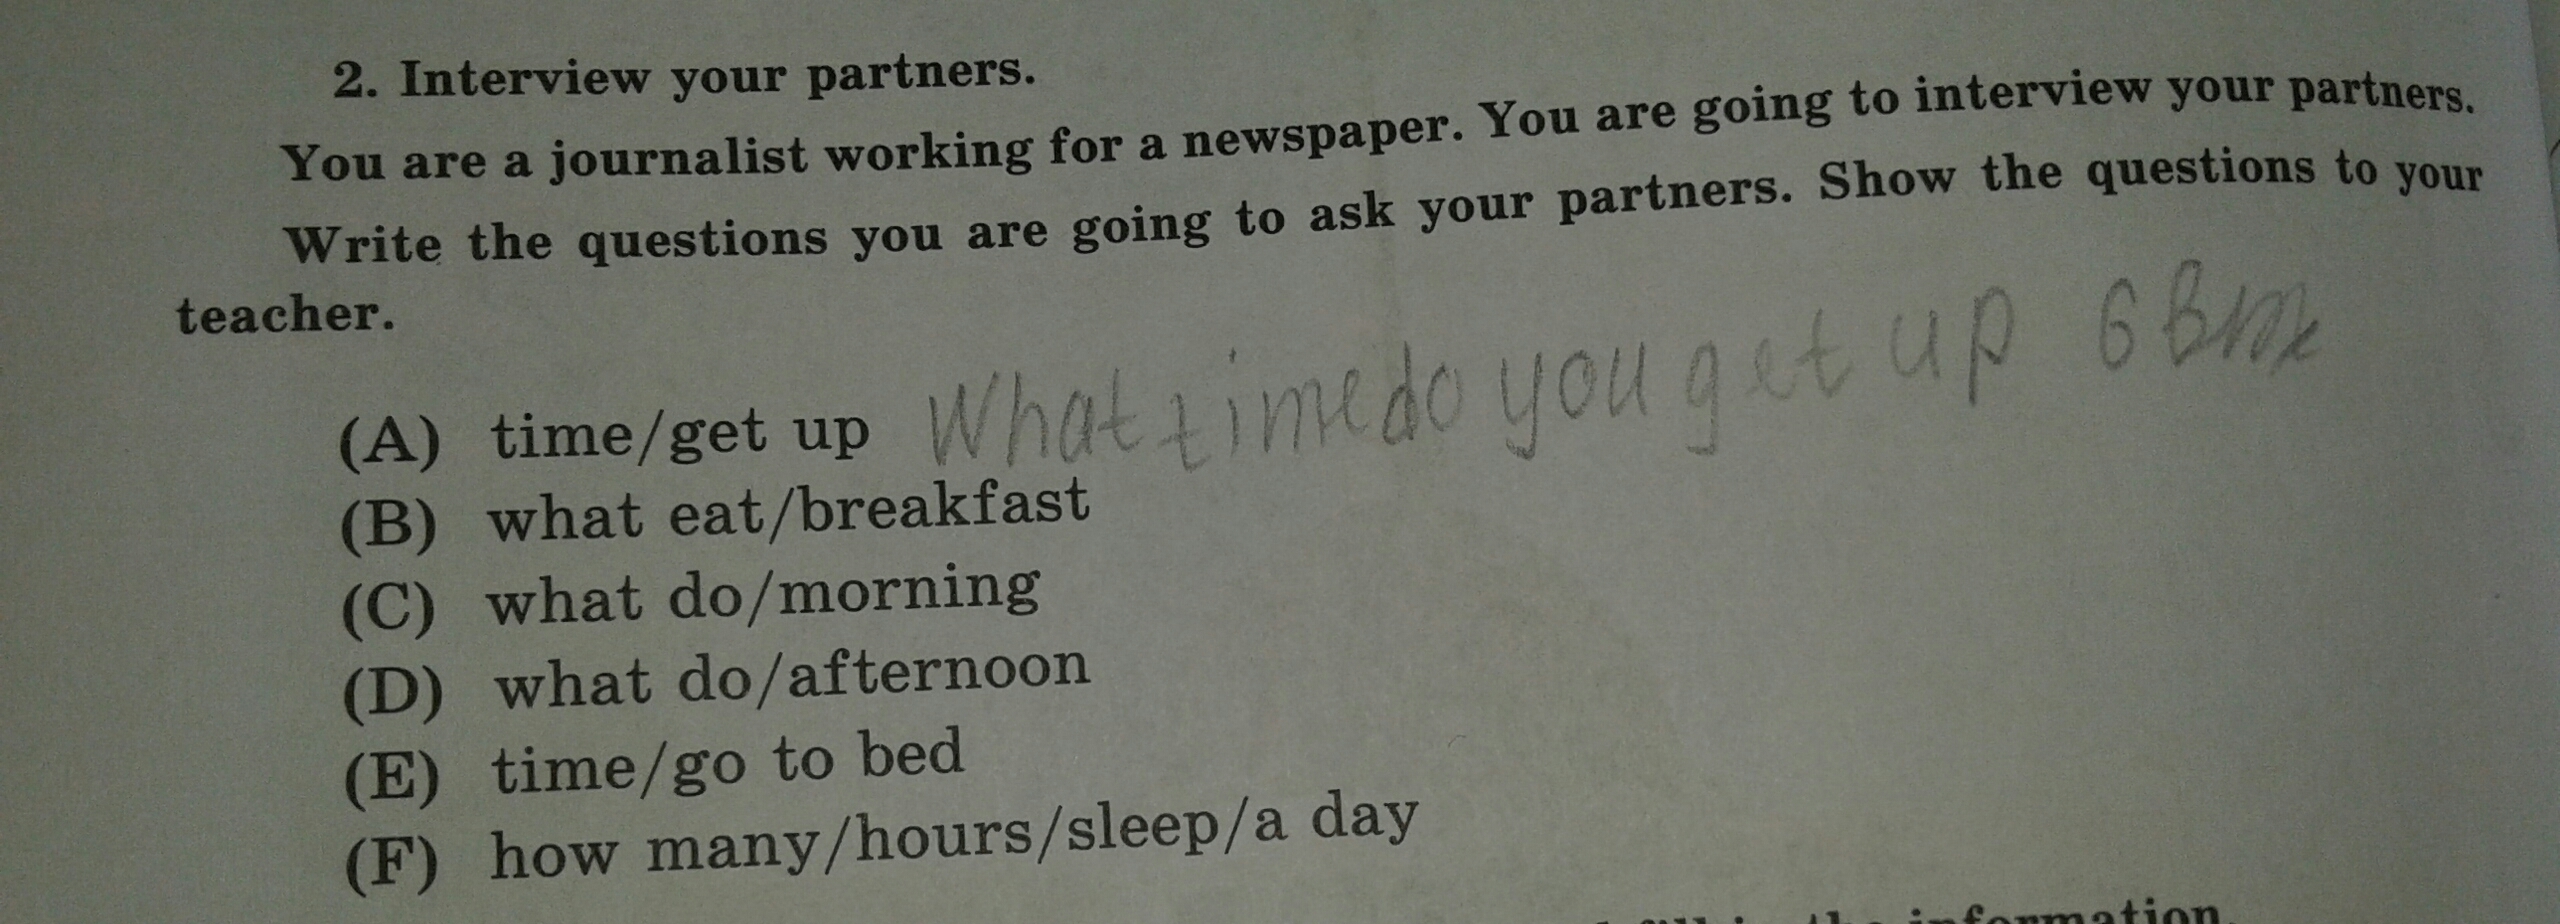 2. Interview your partners.
You are a journalist working for a newspaper. You are going to interview your partners.
Write the questions you are going to ask your partners. Show the questions to your
teacher.
(A) time/get up What time do you get up 6
(B) what eat/breakfast
(C) what do/morning
(D) what do/afternoon
(E) time/go to bed
(F) how many/hours/sleep/a day
information.